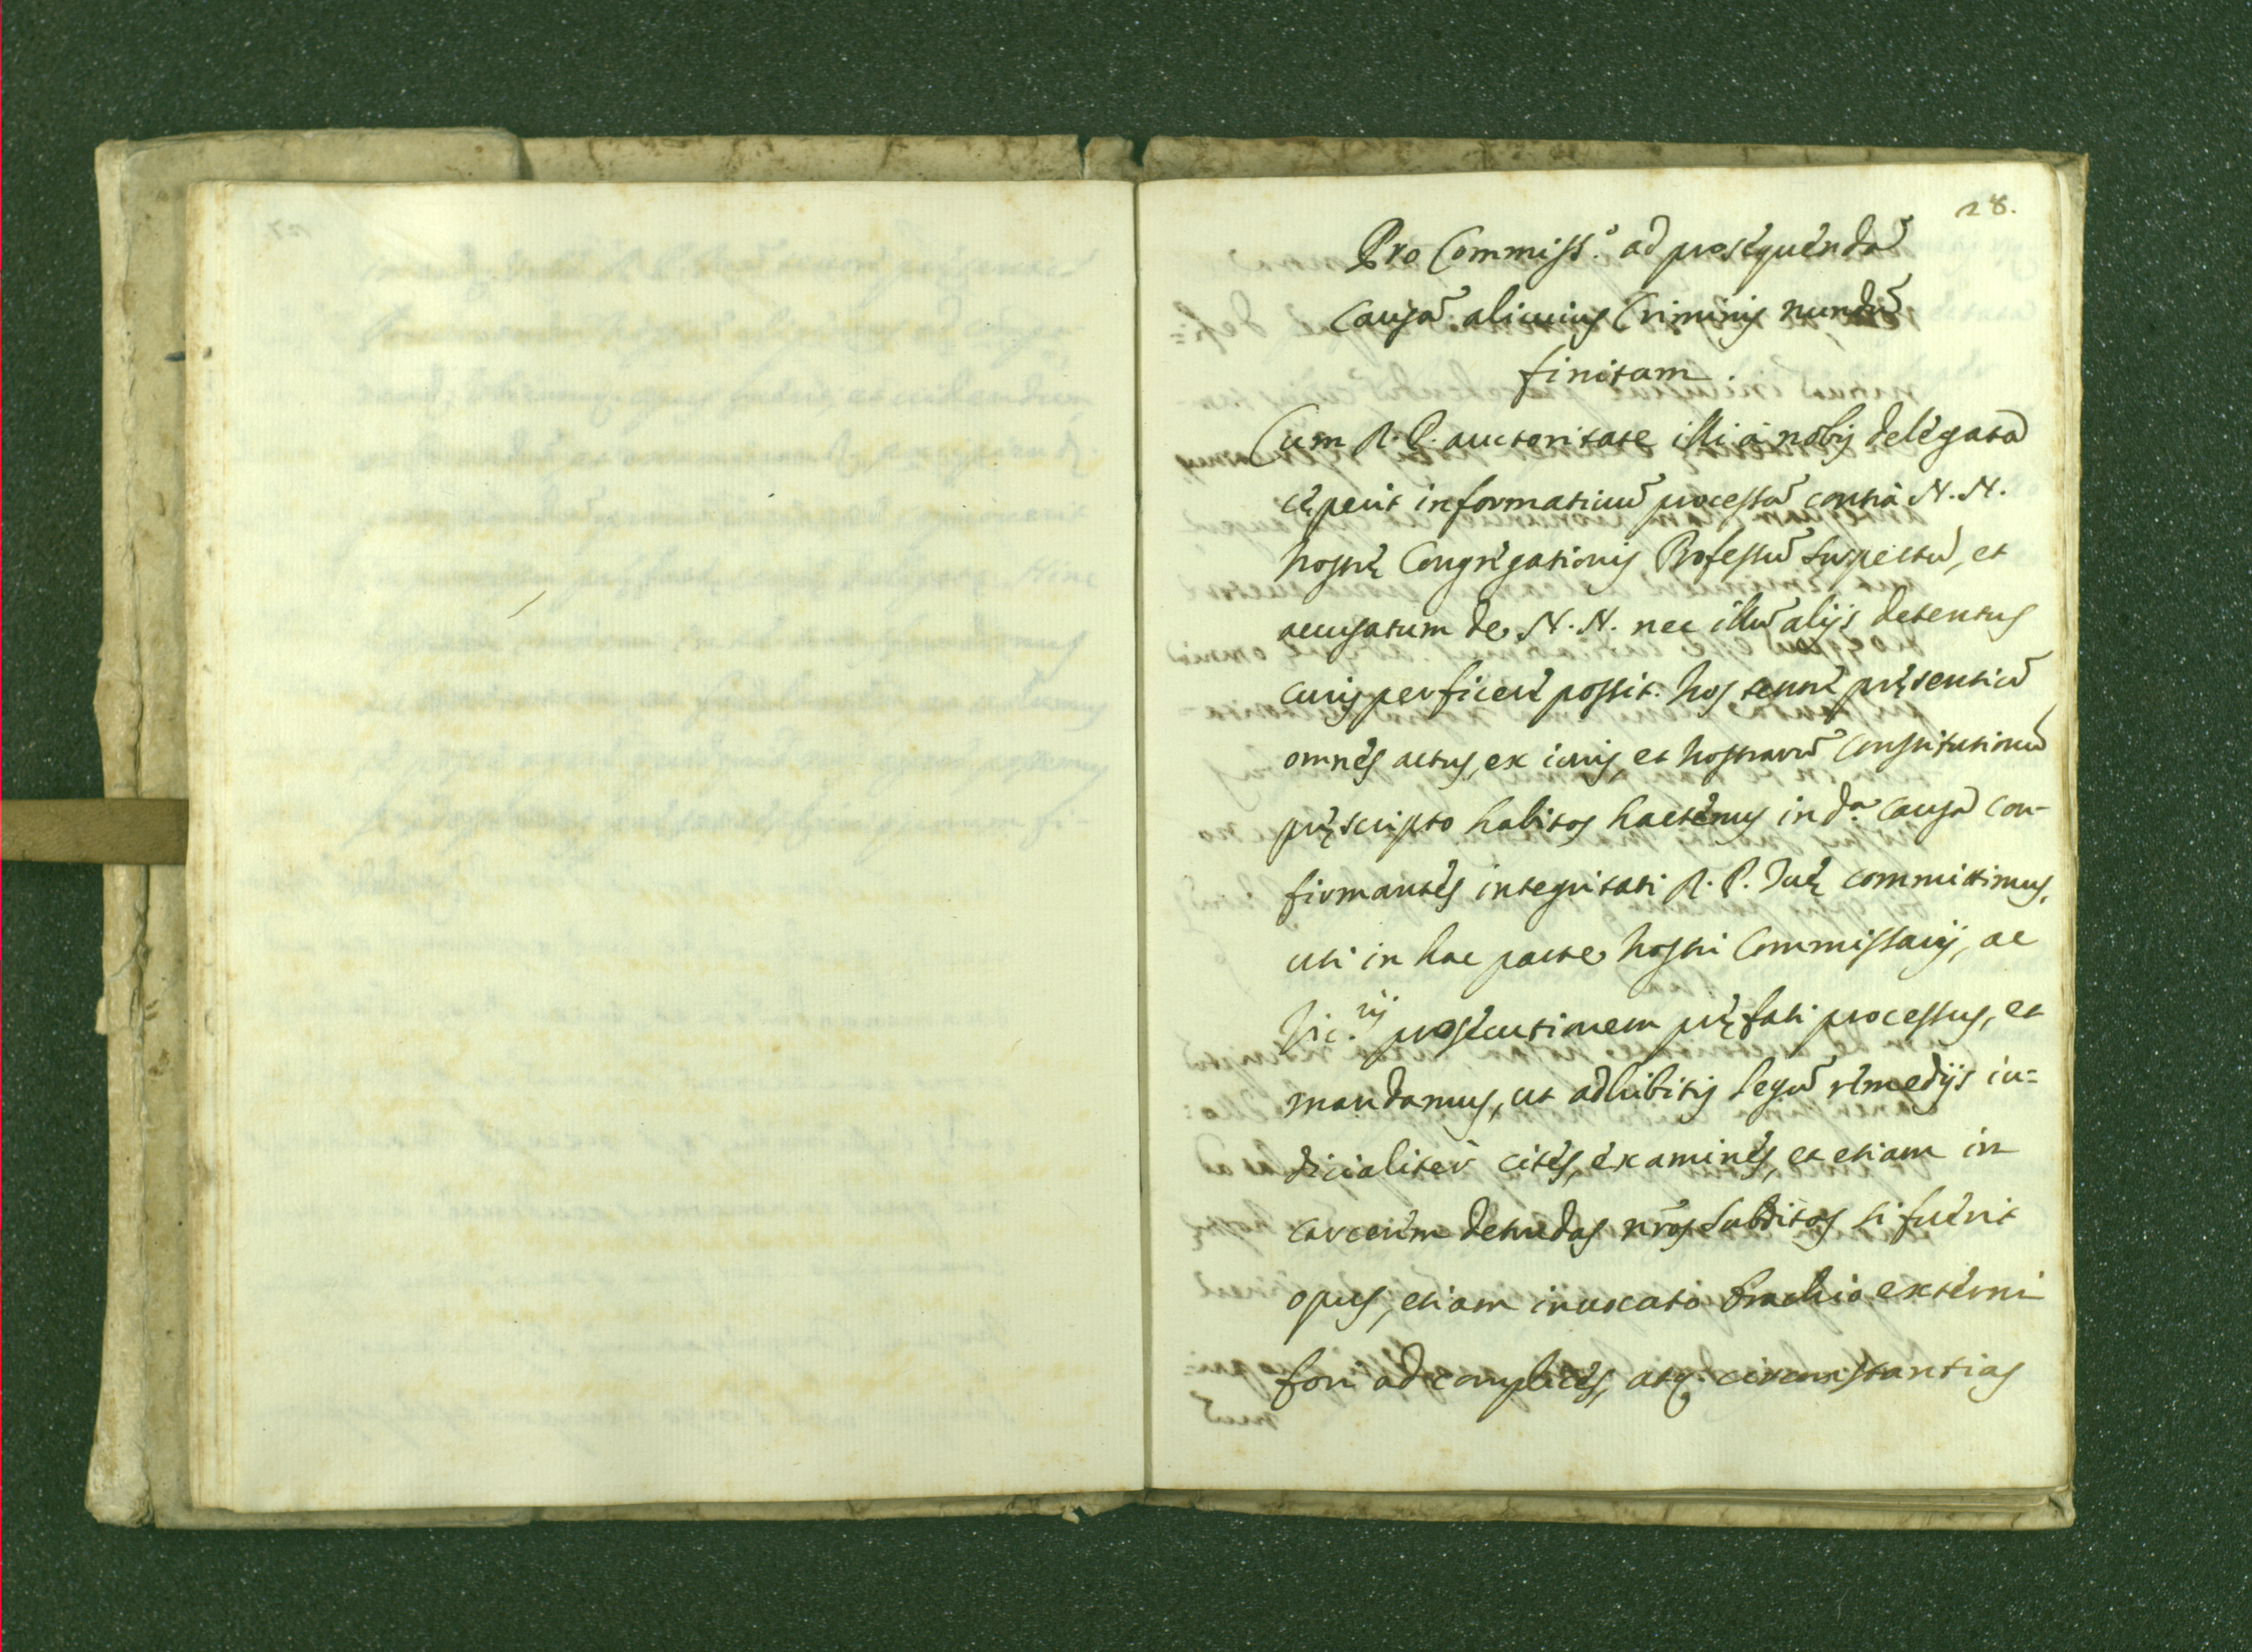 28.
Pro Commiss.º ad prosequendā
Causā alicuius Criminis nundū
finitam.
Cum R. P. auctoritate illi à nobis delegata
cęperit informatiuū processū contrà N. N.
nostrę Congregationis Professū suspectū, et
accusatum de N. N. nec illū alijs detentus
curis perficere possit. hos tenore pręsentiū
omnes actus, ex iuris, et nostrarū Constitutionū
pręscripto habitos hactenus in d.ª Causa con-
firmantes integritati R. P. Tuę committimus,
uti in hac parte nostri Commissarij, ac
Vic.rij prosecutionem pręfati processus, et
mandamus, ut adhibitis legū remedijs iu=
dicialiter cites, examines, et etiam in
carcerem detrudas nr̃os subditos si fuerit
opus, etiam inuocato Brachio externi
fori ad complices, atq. circumstantias